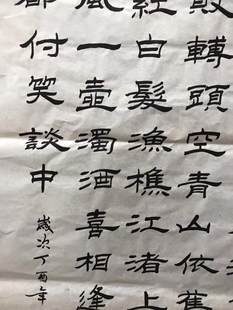 敗轉頭空青山依舊
紅白髮漁樵江渚上
風一壺濁酒喜相逢
都付笑談中
歲次丁酉年